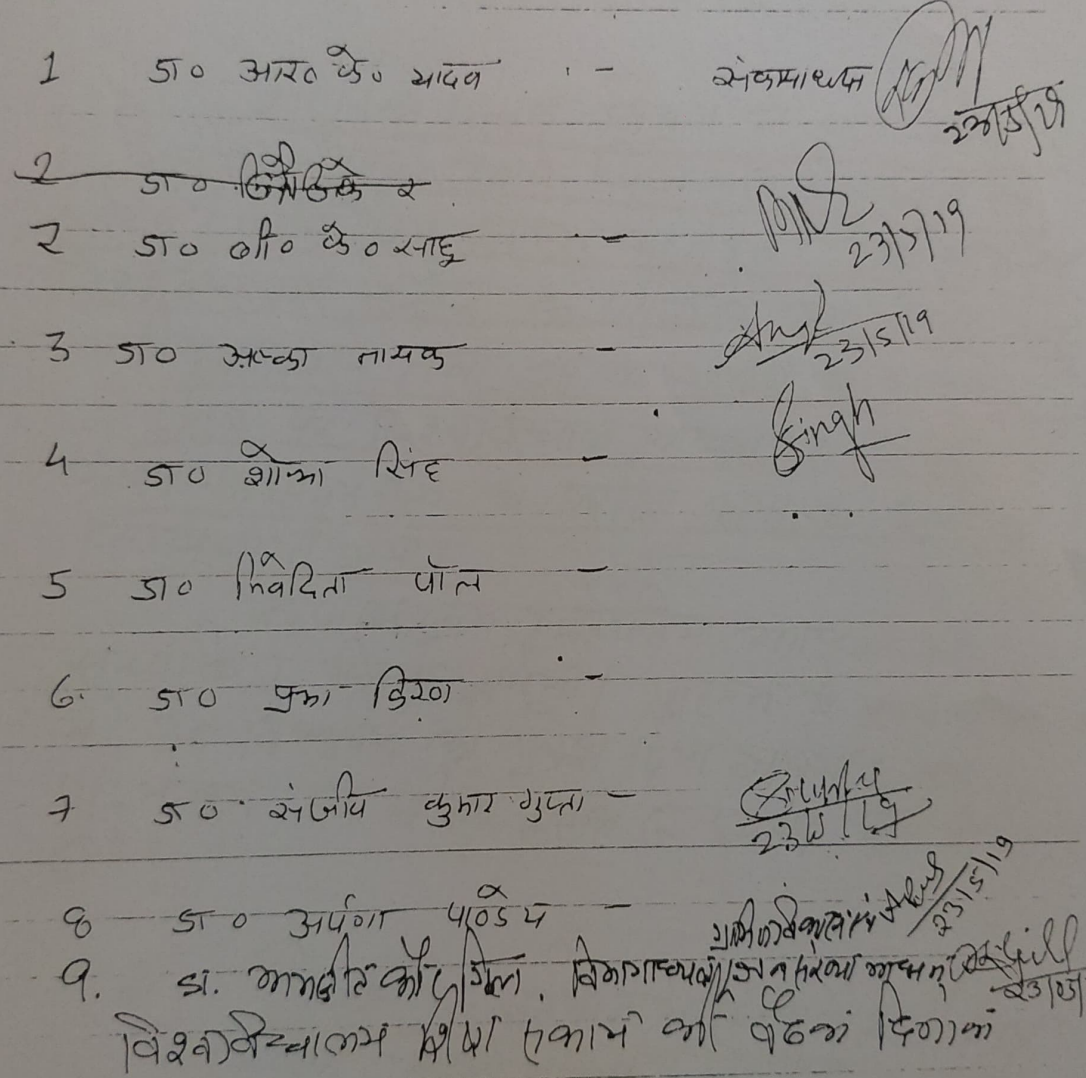 1 डा० आर० के० यादव :- संकायाध्यक्ष 23/5/19
2 डा०
2 डा० वी० के० साहू - 23/5/19
3 डा० अल्का नायक - 23/5/19
4 डा० शोभा सिंह - Singh
5 डा० निवेदिता पॉल -
6. डा० प्रभा किरण -
7 डा० संजीव कुमार गुप्ता - 23/5/19
8 डा० अर्पणा पाण्डेय - 23/5/19
9. डा. अमनजीत कौर गिल, विभागाध्यक्ष Gill
विश्वविद्यालय शिक्षा संकाय की बैठक दिनांक